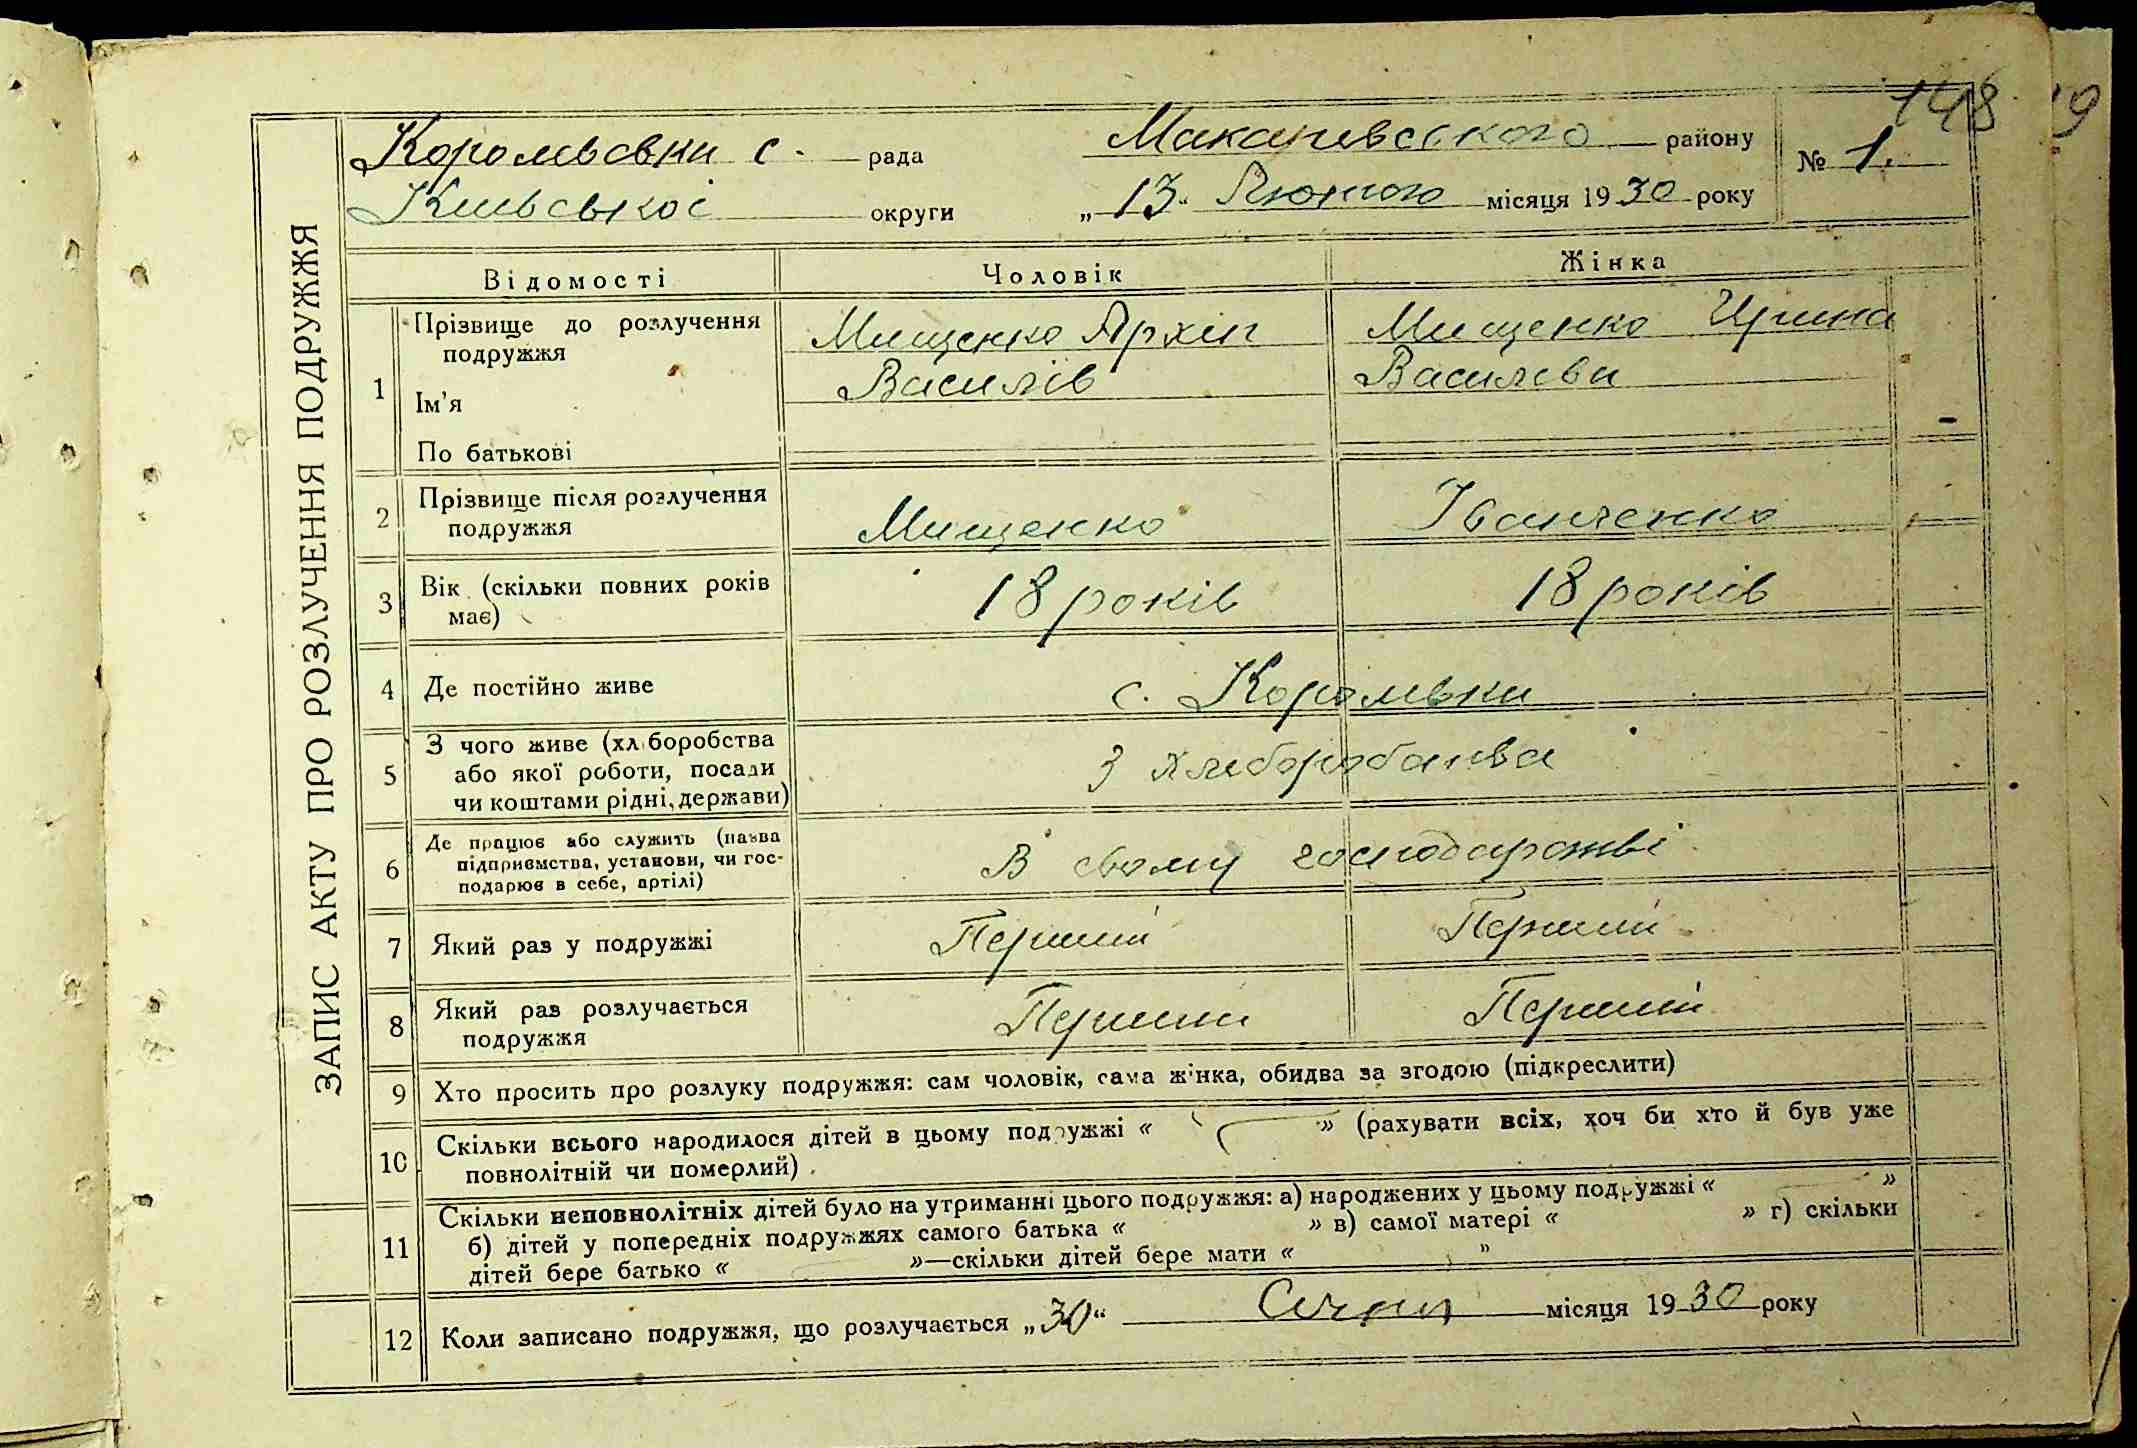 148 19
Королівська с. рада Макарівського району № 1.
Київської округи „13“ Лютого місяця 1930 року
ЗАПИС АКТУ ПРО РОЗЛУЧЕННЯ ПОДРУЖЖЯ
Відомості Чоловік Жінка
1 Прізвище до розлучення Мищенко Архіп Мищенко Ирина
подружжя Василів Василева
Ім’я
По батькові
2 Прізвище після розлучення Мищенко Іванченко
подружжя
3 Вік (скільки повних років 18 років 18 років
має)
4 Де постійно живе с. Королівки
5 З чого живе (хліборобства З хліборобства
або якої роботи, посади
чи коштами рідні, держави)
6 Де працює або служить (назва В свому господарстві
підприємства, установи, чи гос-
подарює в себе, артілі)
7 Який раз у подружжі Перший Перший
8 Який раз розлучається Перший Перший
подружжя
9 Хто просить про розлуку подружжя: сам чоловік, сама жінка, обидва за згодою (підкреслити)
10 Скільки всього народилося дітей в цьому подружжі « » (рахувати всіх, хоч би хто й був уже
повнолітній чи померлий)
11 Скільки неповнолітніх дітей було на утриманні цього подружжя: а) народжених у цьому подружжі « »
б) дітей у попередніх подружжях самого батька « » в) самої матері « » г) скільки
дітей бере батько « »—скільки дітей бере мати « »
12 Коли записано подружжя, що розлучається „30“ Січня місяця 1930 року